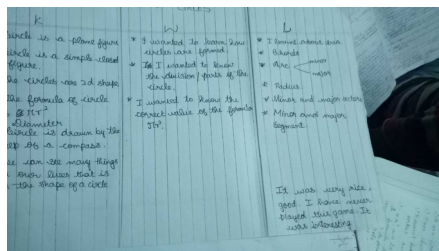 CIRCLES
K
circle is a plane figure
circle is a simple closed
figure.
the circles are 2d shape
the formula of circle
Diameter
circle is drawn by the
help of a compass.
we can see many things
our lives that is
the shape of a circle
W
* I wanted to learn how
circles are formed.
* I wanted to know
the division/parts of the
circle.
* I wanted to know the
correct value of the formula
πr².
L
* I learnt about
* chords
* Arc minor
major
* Radius
* Minor and major sectors
* Minor and major
segment.
It was very nice,
good. I have never
played this game. It
was interesting